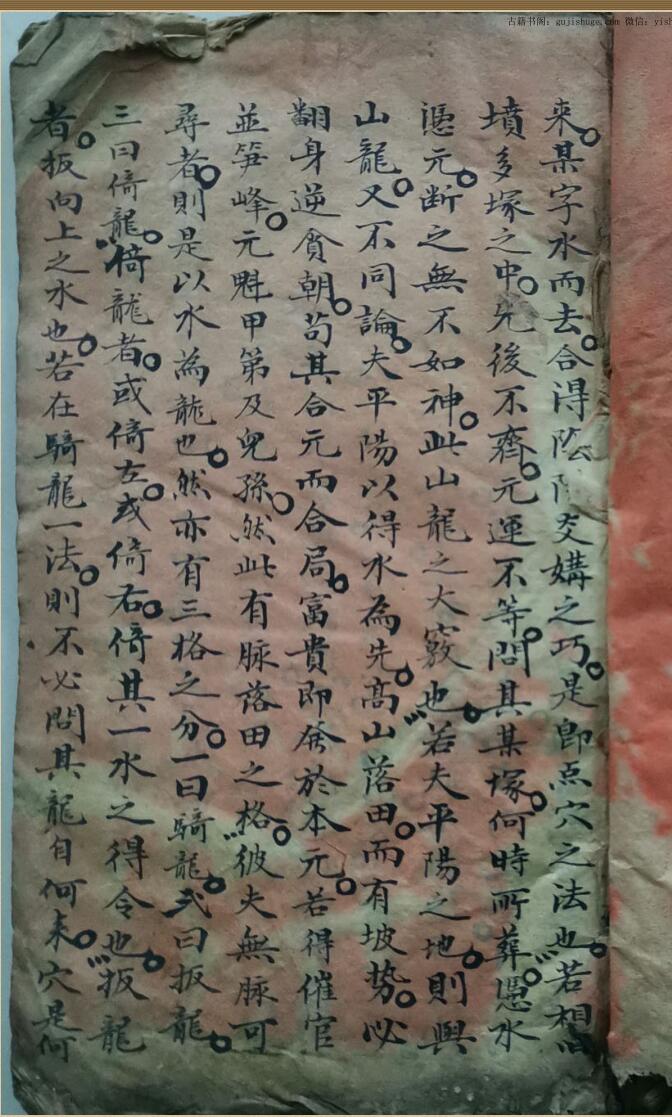 古籍书阁：gujishuge.com 微信：yish
来。某字水而去。合得陰陽交媾之巧。是即点穴之法也。若相旧
墳多塚之中。先後不齊。元運不等。問其某塚。何時所葬。憑水
憑元。断之無不如神。此山龍之大竅也。若夫平陽之地。則與
山龍。又不同論。夫平陽以得水為先。高山落田。而有坡势。必
翻身逆貪朝。苟其合元而合局。富貴即發於本元。若得催官
並笋峰。元魁甲第及兒孫。然此有脉落田之格。彼夫無脉可
尋者。則是以水為龍也。然亦有三格之分。一曰騎龍。弍曰扳龍。
三曰倚龍。倚龍者。或倚左。或倚右。倚其一水之得令也。扳龍
者。扳向上之水也。若在騎龍一法。則不必問其龍自何来。穴是何